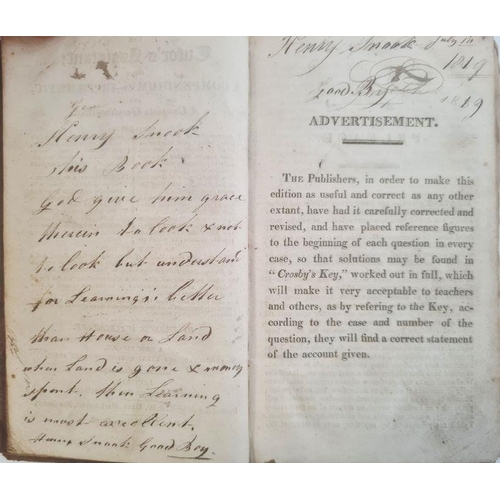 Henry Snook
this Book
God give him grace
therein to look & not
to look but understand
for Learning is better
than House or Land
when Land is gone & money
spent. then Learning
is most excellent.
Henry Snook Good Boy.
Henry Snook July
1819
Good Boy 1819
ADVERTISEMENT.
THE Publishers, in order to make this
edition as useful and correct as any other
extant, have had it carefully corrected and
revised, and have placed reference figures
to the beginning of each question in every
case, so that solutions may be found in
"Crosby's Key," worked out in full, which
will make it very acceptable to teachers
and others, as by refering to the Key, ac-
cording to the case and number of the
question, they will find a correct statement
of the account given.